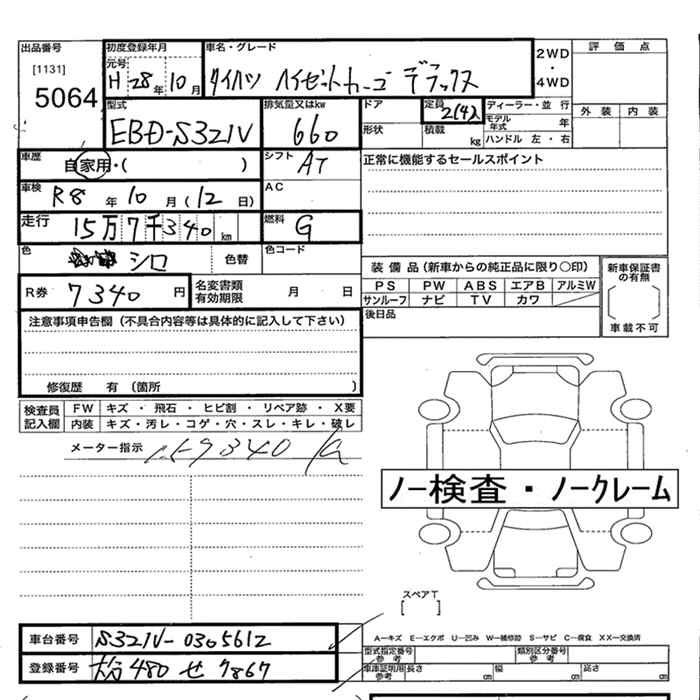 出品番号 [1131] 5064
初度登録年月 元号 H 28年 10月
車名・グレード ダイハツ ハイゼットカーゴ デラックス
2WD・4WD
評価点
外装 内装
型式 EBD-S321V
排気量又はkw 660
ドア
形状
定員 2(4)人
積載 kg
ディーラー・並行
モデル年式 年
ハンドル 左・右
車歴 自家用・( )
シフト AT
正常に機能するセールスポイント
車検 R8年 10月(12日)
AC
走行 15万7千340km
燃料 G
色 シロ 色替
色コード
装備品(新車からの純正品に限り○印)
新車保証書の有無
PS PW ABS エアB アルミW
サンルーフ ナビ TV カワ
車載不可
R券 7340円
名変書類有効期限 月 日
後日品
注意事項申告欄(不具合内容等は具体的に記入して下さい)
修復歴 有(箇所 )
検査員記入欄
FW キズ・飛石・ヒビ割・リペア跡・X要
内装 キズ・汚レ・コゲ・穴・スレ・キレ・破レ
メーター指示
ノー検査・ノークレーム
スペアT
[ ]
A―キズ E―エクボ U―凹み W―補修跡 S―サビ C―腐食 XX―交換済
車台番号 S321V-0305612
型式指定番号 参考
類別区分番号 参考
登録番号 480 せ 7867
車庫証明用 参考 長さ cm 幅 cm 高さ cm